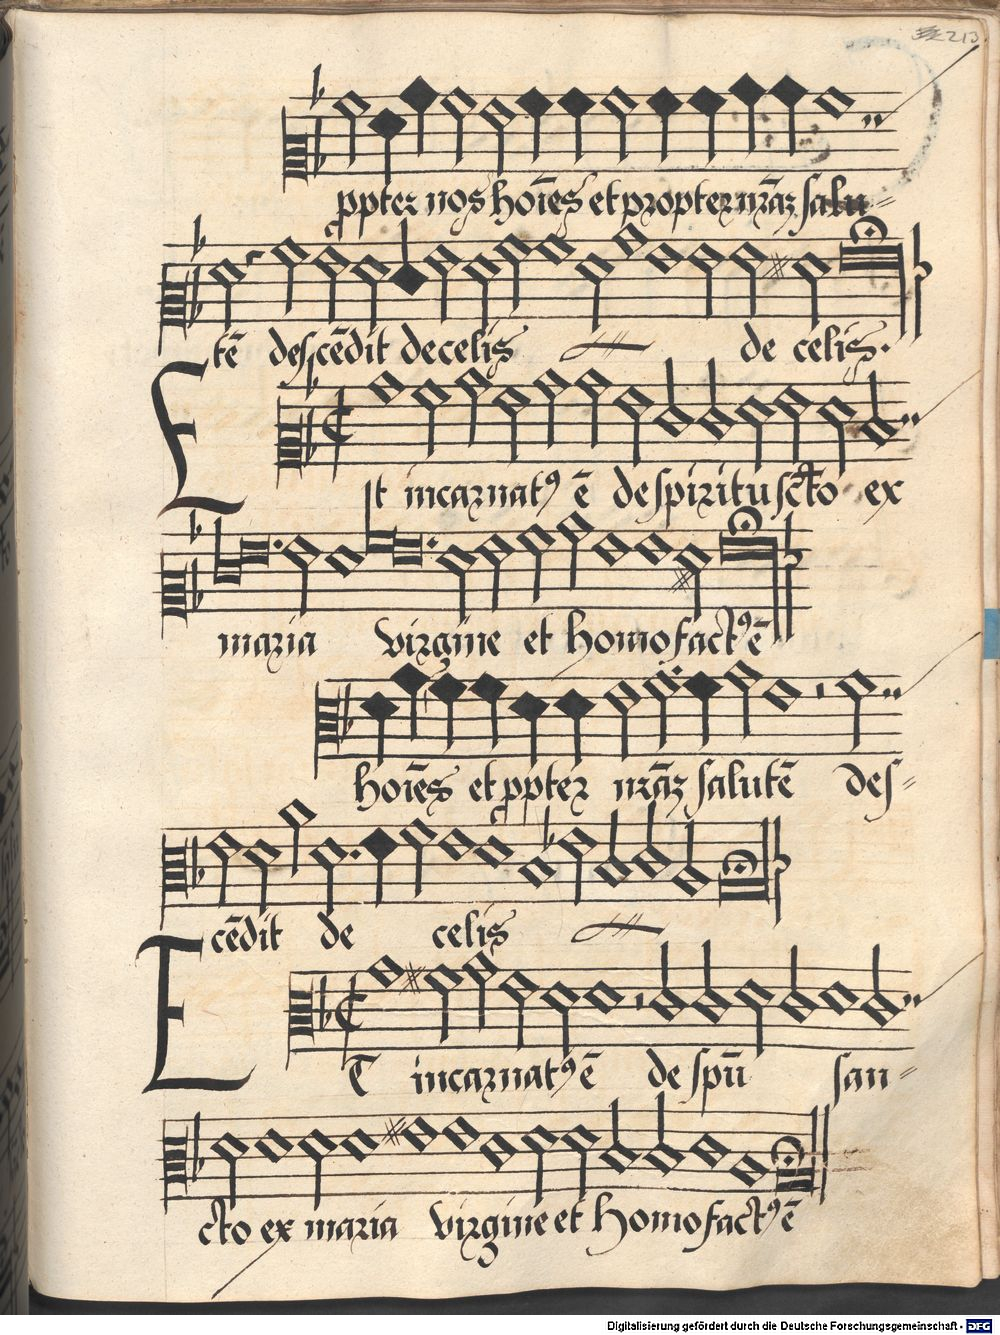 213
ppter nos hoīes et propter nrāz salu=
tē descēdit de celis de celis.
Et incarnatꝰ ē de spiritu scto ex
maria virgine et homo factꝰ ē
hoīes et ppter nrāz salutē des=
cēdit de celis
ET incarnatꝰ ē de spū san=
cto ex maria virgine et homo factꝰ ē
Digitalisierung gefördert durch die Deutsche Forschungsgemeinschaft - DFG